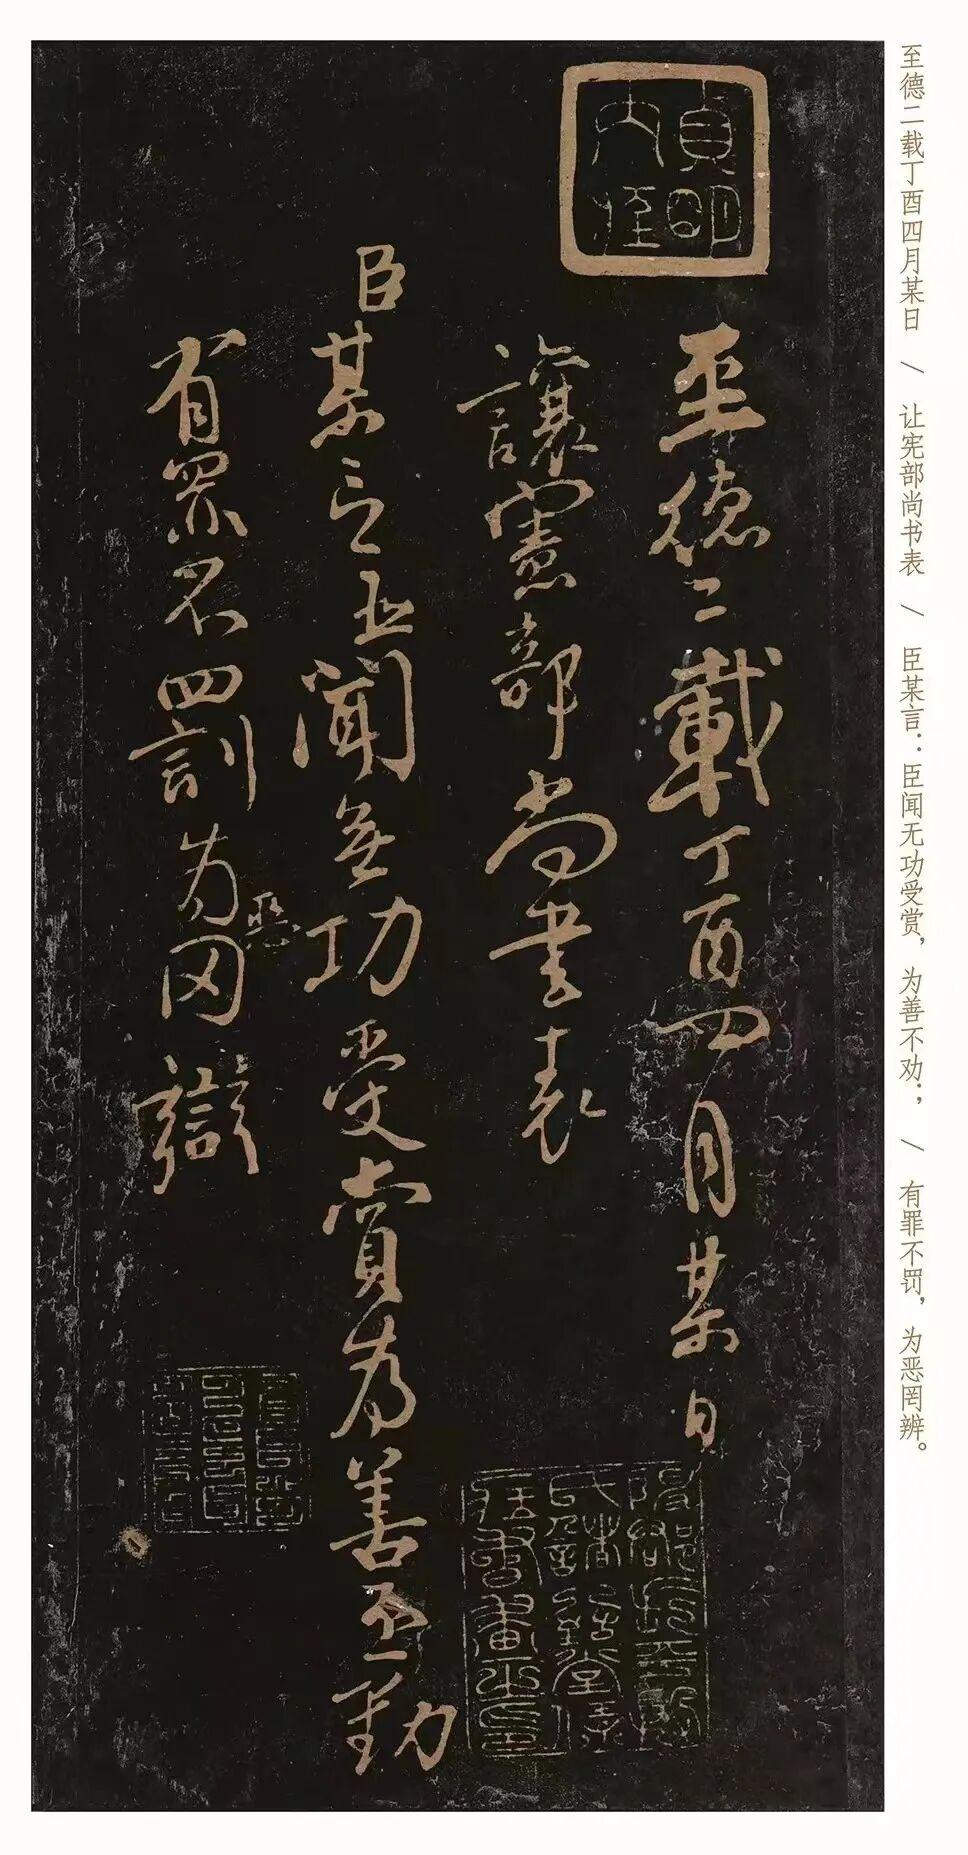 至德二载丁酉四月某日 / 让宪部尚书表 / 臣某言：臣闻无功受赏，为善不劝； / 有罪不罚，为恶罔辨。
至德二載丁酉四月某日
讓憲部尚書表
臣某言臣聞無功受賞為善不勸
有罪不罰為惡罔辯